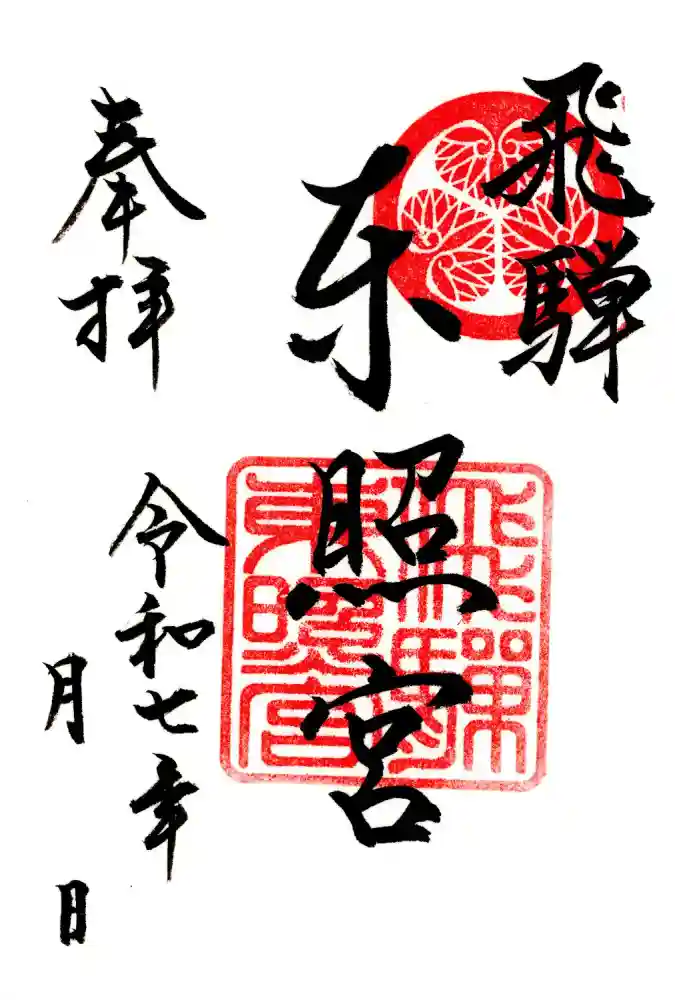 飛騨
東照宮
奉拝
令和七年
月 日
飛騨東照宮